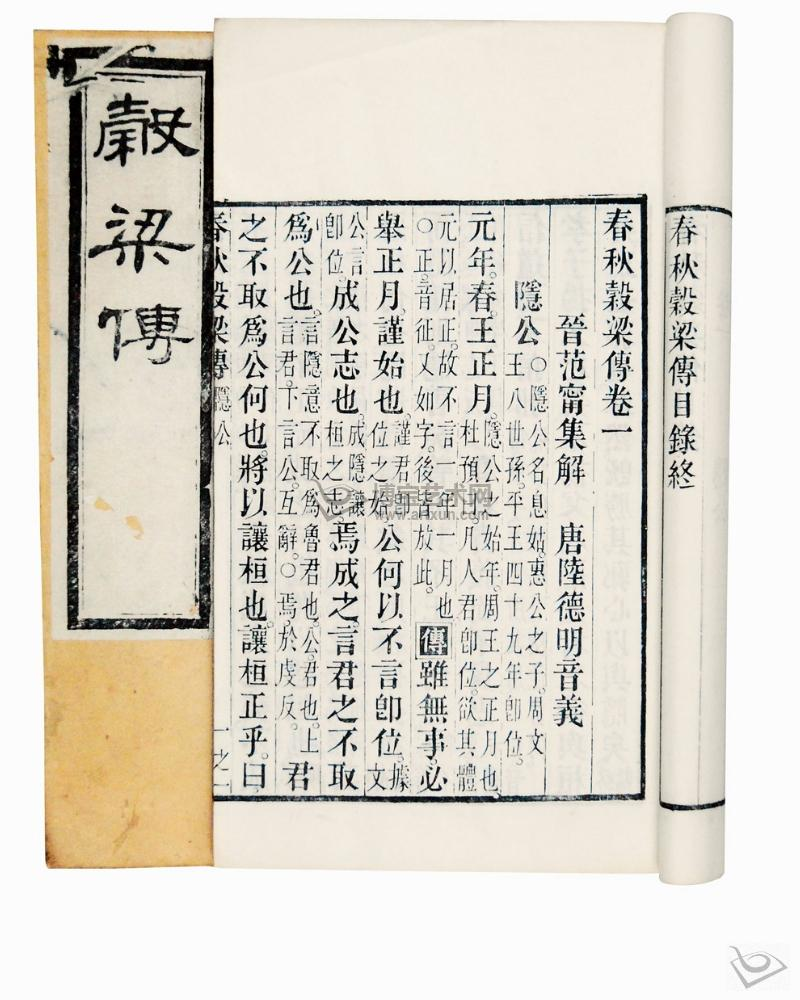 春秋穀梁傳目錄終
春秋穀梁傳卷一
晉范甯集解 唐陸德明音義
隱公○隱公名息姑。惠公之子。周文王八世孫。平王四十九年卽位。
元年。春。王正月。隱公之始年。周王之正月也。杜預曰。凡人君卽位。欲其體
元以居正。故不言一年一月也。○正。音征。又如字。後皆放此。傳雖無事。必
舉正月。謹始也。謹君卽位之始。公何以不言卽位。據文
公言卽位。成公志也。成隱讓桓之志。焉成之。言君之不取
爲公也。言隱意不取爲魯君也。公。君也。上言君。下言公。互辭。○焉。於虔反。君
之不取爲公。何也。將以讓桓也。讓桓正乎。曰
春秋穀梁傳 隱公 一之一
穀梁傳
博宝艺术网
www.artxun.com